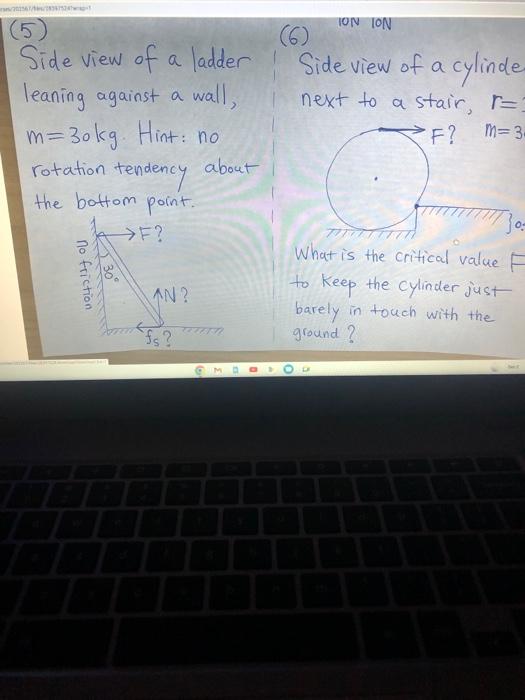 (5)
Side view of a ladder
leaning against a wall,
m=30kg. Hint: no
rotation tendency about
the bottom point.
F?
30°
no friction
N?
fs?
10N 10N
(6)
Side view of a cylinde
next to a stair, r=
m=3
F?
What is the critical value F
to keep the cylinder just
barely in touch with the
ground?